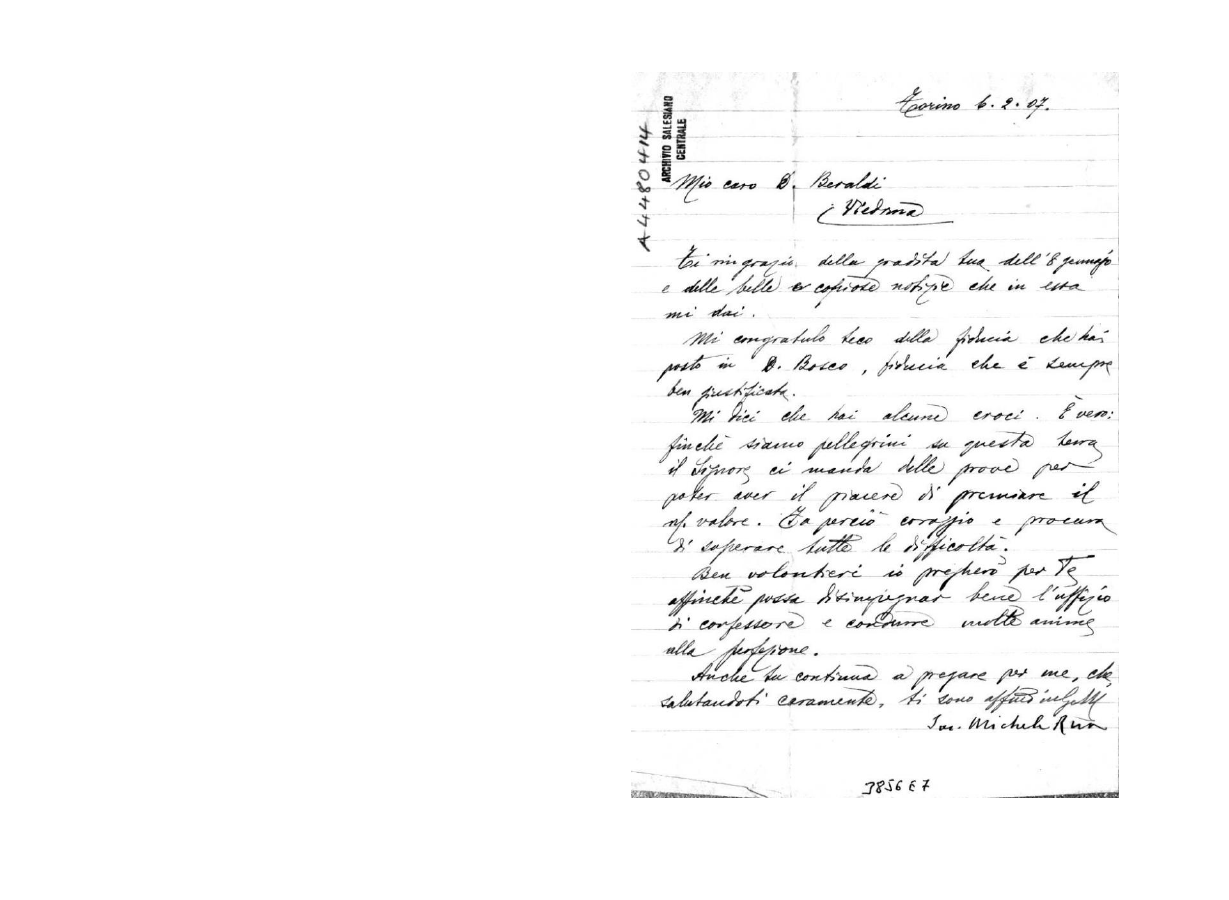 Torino 6. 2. 07.
A4480414
ARCHIVIO SALESIANO
CENTRALE
Mio caro D. Beraldi
Viedma
Ti ringrazio della gradita tua dell'8 gennajo
e delle belle e copiose notizie che in essa
mi dai.
Mi congratulo teco della fiducia che hai
posto in D. Bosco, fiducia che è sempre
ben giustificata.
Mi dici che hai alcune croci. È vero:
finchè siamo pellegrini su questa terra
il Signore ci manda delle prove per
poter aver il piacere di premiare il
ns. valore. Fa perciò coraggio e procura
di superare tutte le difficoltà.
Ben volontieri io pregherò per Te
affinchè possa disimpegnar bene l'uffizio
di confessore e condurre molte anime
alla perfezione.
Anche tu continua a pregare per me, che,
salutandoti caramente, ti sono affmo in G. e M.
Sac. Michele Rua
3856 E 7